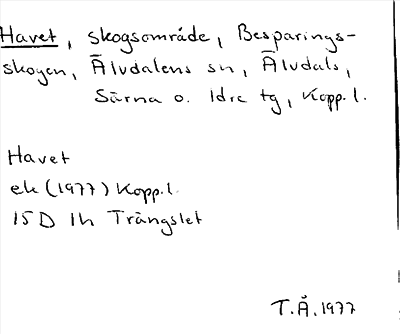 Havet, skogsområde, Besparings-
skogen, Älvdalens sn, Älvdals,
Särna o. Idre tg, Kopp. l.
Havet
ek (1977) Kopp. l.
15 D 1h Trängslet
T.Å. 1977